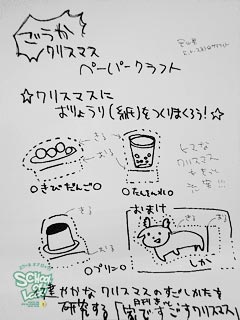 ごうか
クリスマス
ペーパークラフト
☆クリスマスに
おりょうり(紙)をつくりまくろう!☆
きる
おる
○きびだんご○
きる
おる
きる
おる
○プリン○
おまけ
きる
しか
ヒマな
クリスマス
SCHOOL OF LOCK!
やかなクリスマスのすごしかたを
研究する「家ですごすクリスマス」